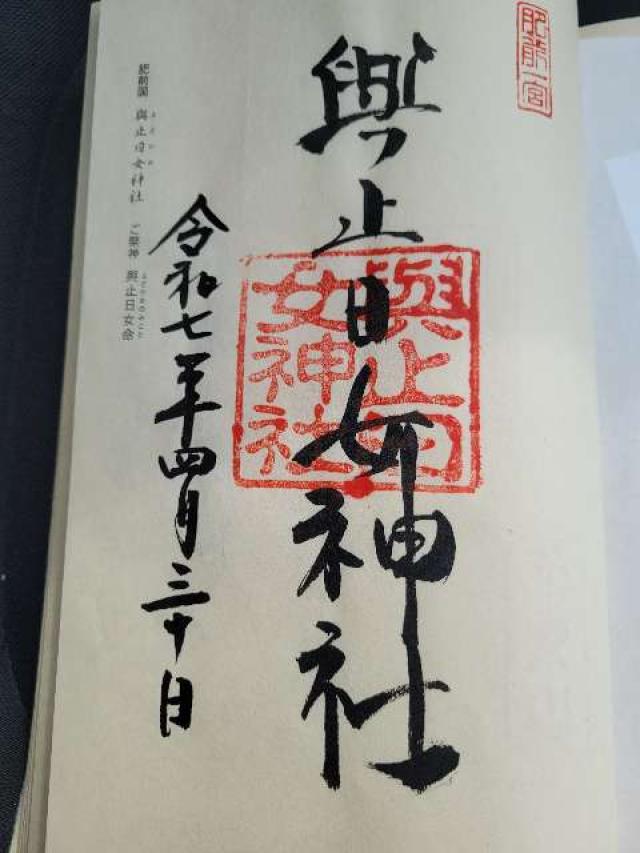 肥前一宮
與止日女神社
與止日女神社
令和七年四月三十日
肥前國 與止日女神社 ご祭神 與止日女命
よどひめ